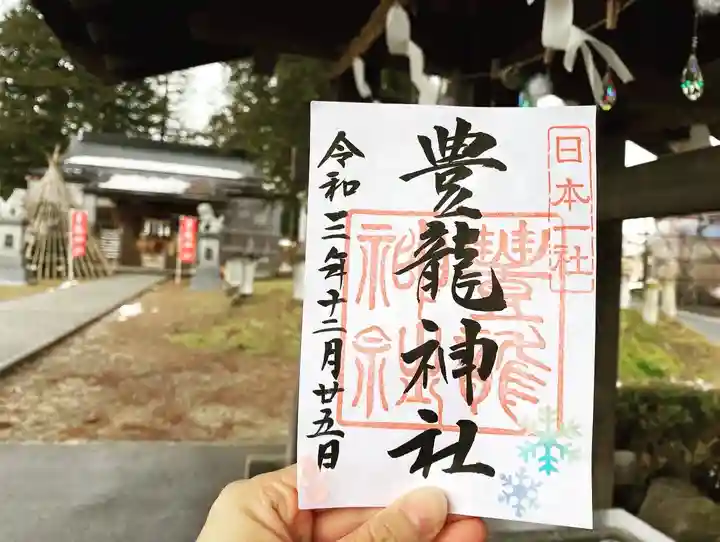 日本一社
豊龍神社
豊龍神社
令和三年十二月廿五日